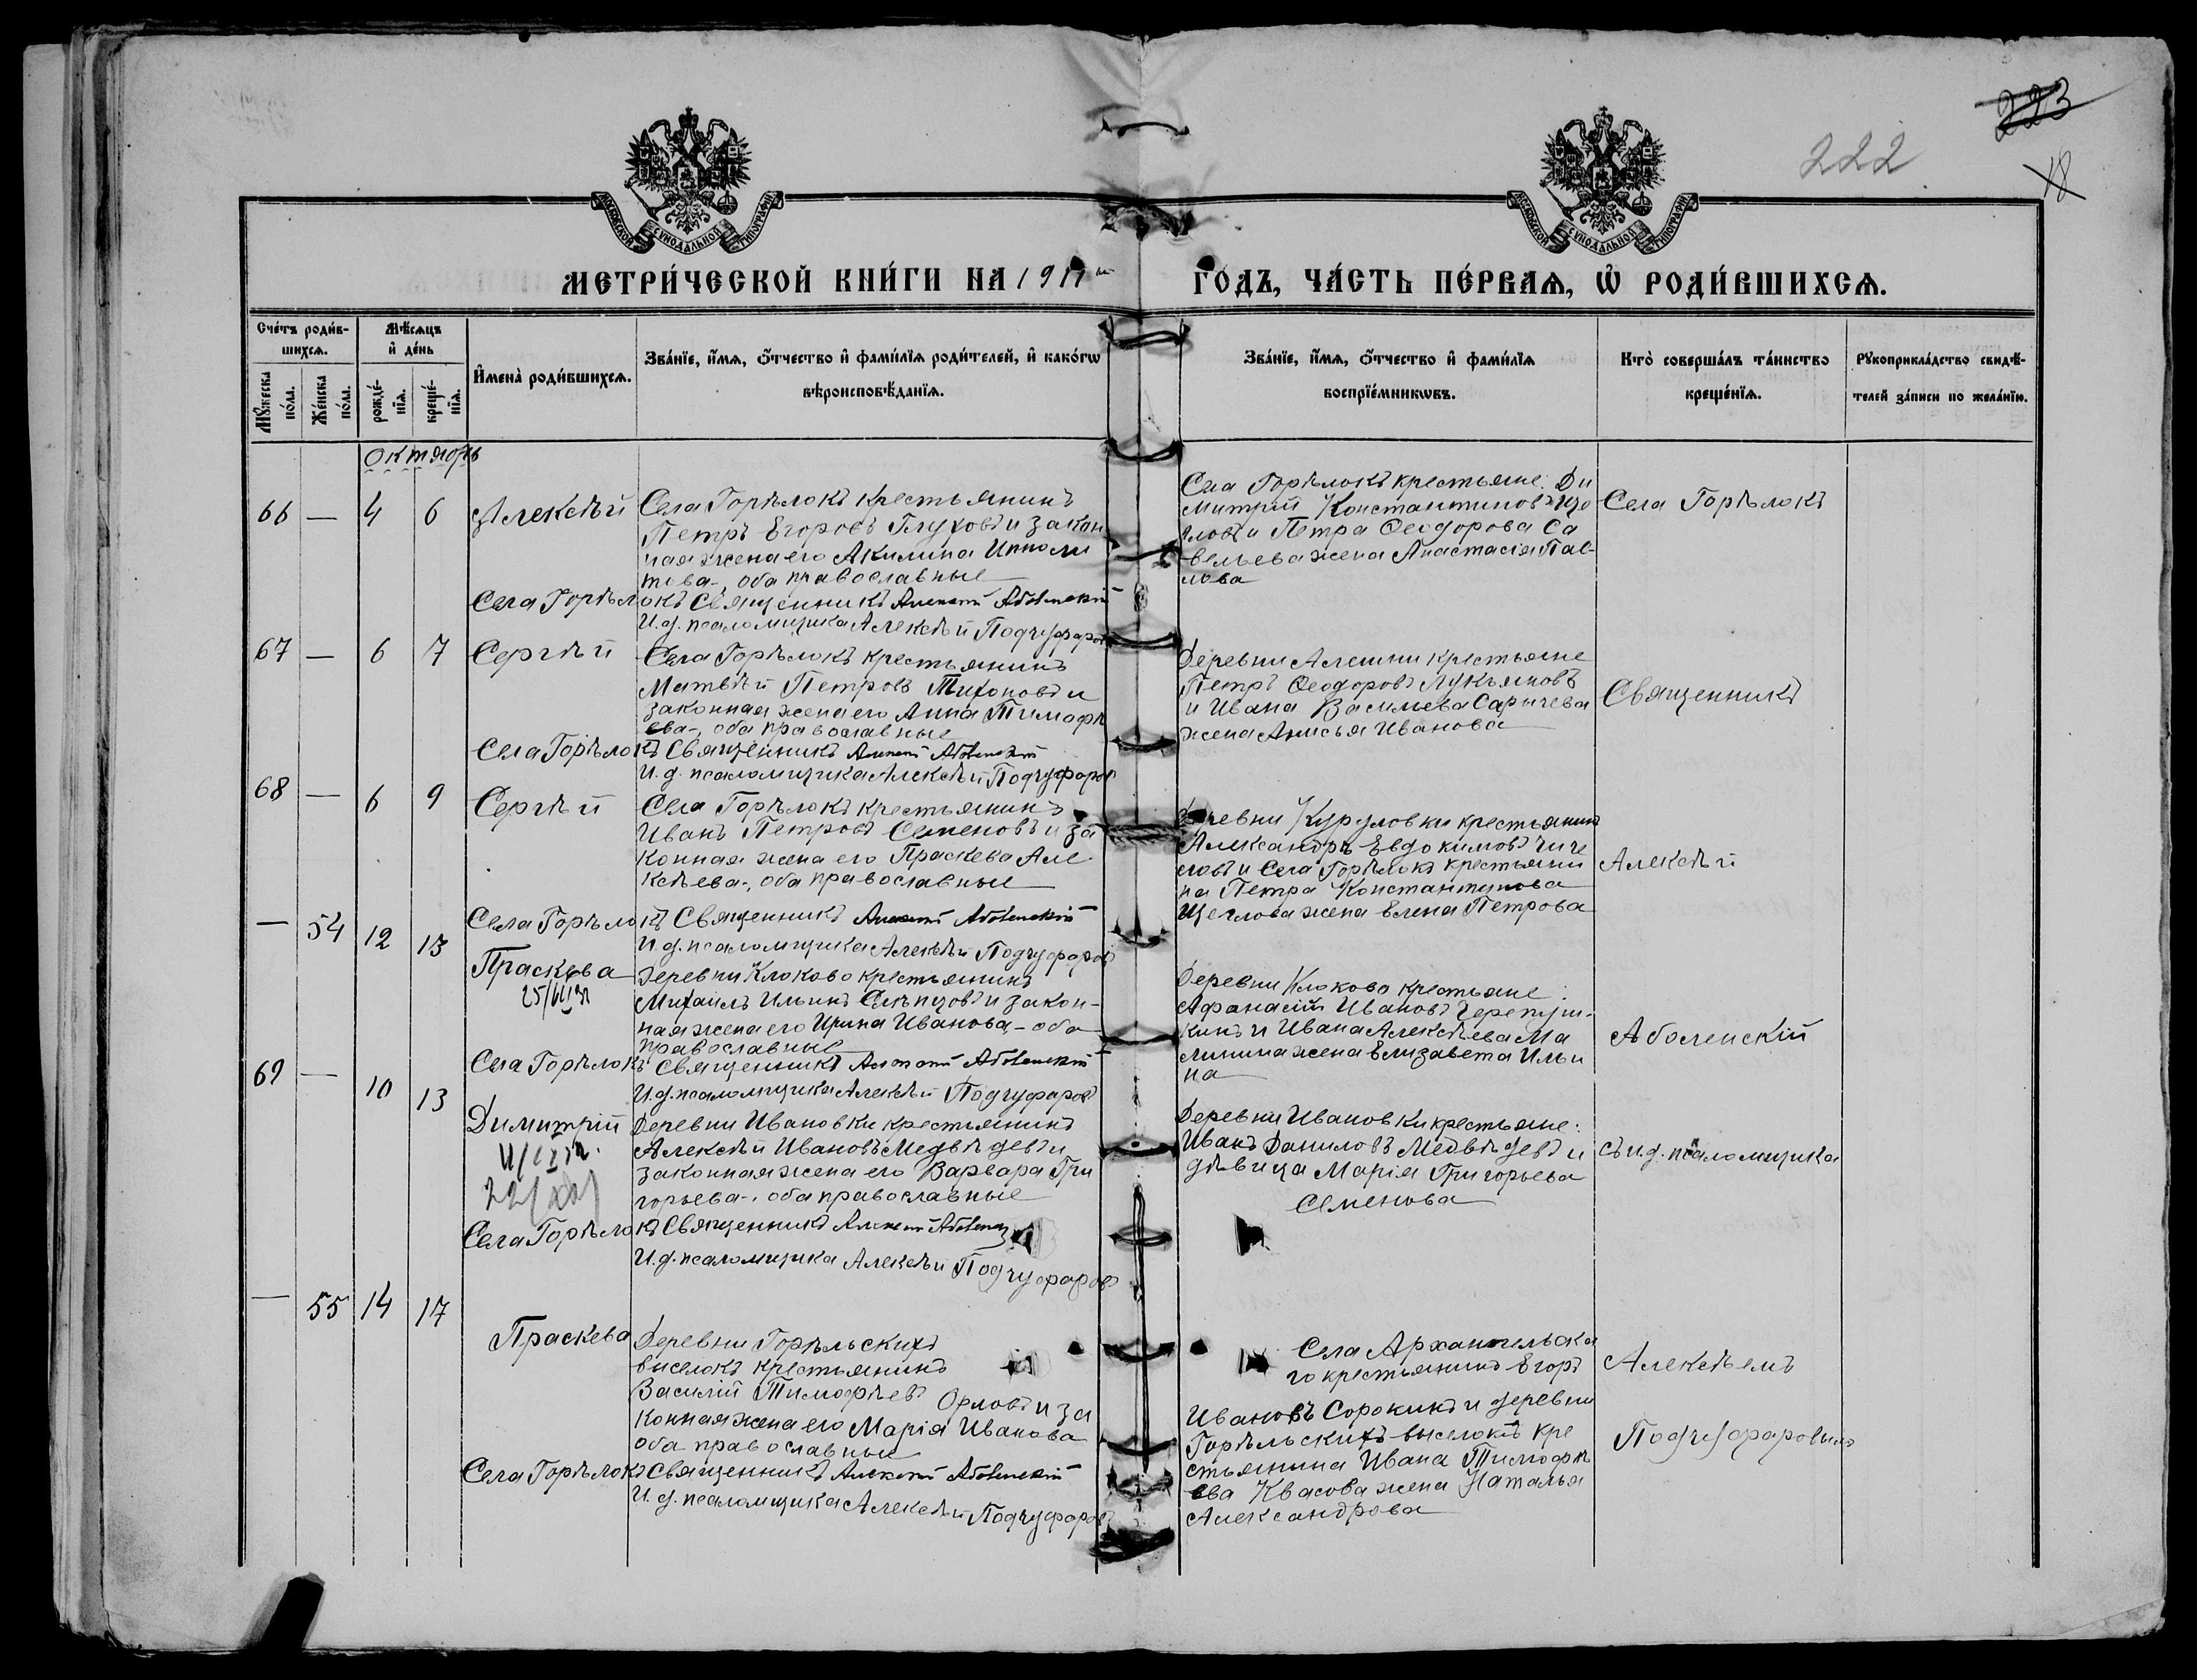 223
222
18
МОСКОВСКОЙ СУНОДАЛЬНОЙ ТИПОГРАФІИ
МОСКОВСКОЙ СУНОДАЛЬНОЙ ТИПОГРАФІИ
МЕТРИ́ЧЕСКОЙ КНИ́ГИ НА 1911
ГО́ДЪ, ЧА́СТЬ ПЕ́РВАѦ, Ѡ҆ РОДИ́ВШИХСѦ.
Сче́тъ роди́в-
шихсѧ.
Мѣ́сѧцъ
и҆ де́нь
Мꙋ́жеска
по́ла.
Же́нска
по́ла.
рожде́-
нїѧ.
креще́-
нїѧ.
И҆мена̀ роди́вшихсѧ.
Зва́нїе, и҆́мѧ, ѻ҆́тчество и҆ фамі́лїѧ роди́телей, и҆ како́гѡ
вѣроисповѣ́данїѧ.
Зва́нїе, и҆́мѧ, ѻ҆́тчество и҆ фамі́лїѧ
воспрїе́мникѡвъ.
Кто̀ соверша́лъ та́инство
креще́нїѧ.
Рꙋкоприкла́дство свидѣ́-
телей за́писи по жела́нїю.
Октябрь
66 — 4 6 Алексѣй
Села Горѣлокъ крестьянинъ
Петръ Егоровъ Глуховъ и закон
ная жена его Акилина Ипполи
това-, оба православные
Села Горѣлокъ крестьяне: Ди
митрій Константиновъ
и Петра Ѳеодорова Са
вельева жена Анастасія Пав-
лова
Села Горѣлокъ
Села Горѣлокъ Священникъ Алексѣй Аболенскій
И.д. псаломщика Алексѣй Подчуфаровъ
67 — 6 7 Сергѣй
Села Горѣлокъ крестьянинъ
Матвѣй Петровъ Тихоновъ и
законная жена его Анна Тимофѣ
ева-, оба православные
Деревни Алешни крестьяне
Петръ Ѳеодоровъ Лукьяновъ
и Ивана Васильева Сарычева
жена Анисья Иванова
Священникъ
Села Горѣлокъ Священникъ Алексѣй Аболенскій
И.д. псаломщика Алексѣй Подчуфаровъ
68 — 6 9 Сергѣй
Села Горѣлокъ крестьянинъ
Иванъ Петровъ Семеновъ и за
конная жена его Праскева Але
ксѣева-, оба православные
Деревни Курдловки крестьянинъ
Александръ Евдокимовъ Чиче
ловъ и Села Горѣлокъ крестьяни
на Петра Константинова
Щеглова жена Елена Петрова
Алексѣй
Села Горѣлокъ Священникъ Алексѣй Аболенскій
И.д. псаломщика Алексѣй Подчуфаровъ
— 54 12 13 Праскева
Деревни Клоково крестьянинъ
Михаилъ Ильинъ Слѣпцовъ и закон-
ная жена его Ирина Иванова - оба
православные
Деревни Клоково крестьяне:
Афанасій Ивановъ Черепуш-
кинъ и Ивана Алексѣева Ма
линина жена Елизавета Ильи
на
Аболенскій
Села Горѣлокъ Священникъ Алексѣй Аболенскій
И.д. псаломщика Алексѣй Подчуфаровъ
69 — 10 13 Димитрій
Деревни Ивановки крестьянинъ
Алексѣй Ивановъ Медвѣдевъ и
законная жена его Варвара Гри
горьева-, оба православные
Деревни Ивановки крестьяне:
Иванъ Даниловъ Медвѣдевъ и
дѣвица Марія Григорьева
Семенова
съ и.д. псаломщика
Села Горѣлокъ Священникъ Алексѣй
И.д. псаломщика Алексѣй Подчуфаровъ
— 55 14 17 Праскева
Деревни Горѣльскихъ
выселокъ крестьянинъ
Василій Тимофѣевъ Орловъ и за
конная жена его Марія Иванова
оба православные
Села Архангельска
го крестьянинъ Егоръ
Ивановъ Сорокинъ и деревни
Горѣльскихъ выселокъ кре
стьянина Ивана Тимофѣ
ева Квасова жена Наталья
Александрова
Алексѣемъ
Подчуфаровымъ
Села Горѣлокъ Священникъ Алексѣй Аболенскій
И.д. псаломщика Алексѣй Подчуфаровъ